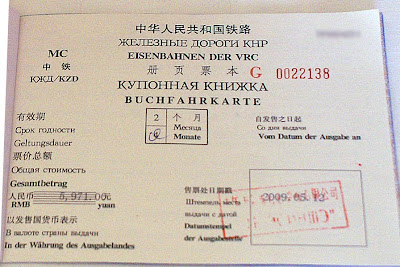 中华人民共和国铁路
MC
ЖЕЛЕЗНЫЕ ДОРОГИ КНР
中 铁
EISENBAHNEN DER VRC
КЖД/KZD
册 页 票 本 G 0022138
КУПОННАЯ КНИЖКА
BUCHFAHRKARTE
有效期
2 个 月
自发售之日起
Срок годности
Месяца
Со дня выдачи
Geltungsdauer
Monate
Vom Datum der Ausgabe an
票价总额
Общая стоимость
Gesamtbetrag
售票处日期戳
人民币 5,971.00元
Штемпель места
2009.05.12
RMB yuan
выдачи с датой
以发售国货币表示
Datumstempel
В валюте страны выдачи
der Ausgabestelle
In der Währung des Ausgabelandes